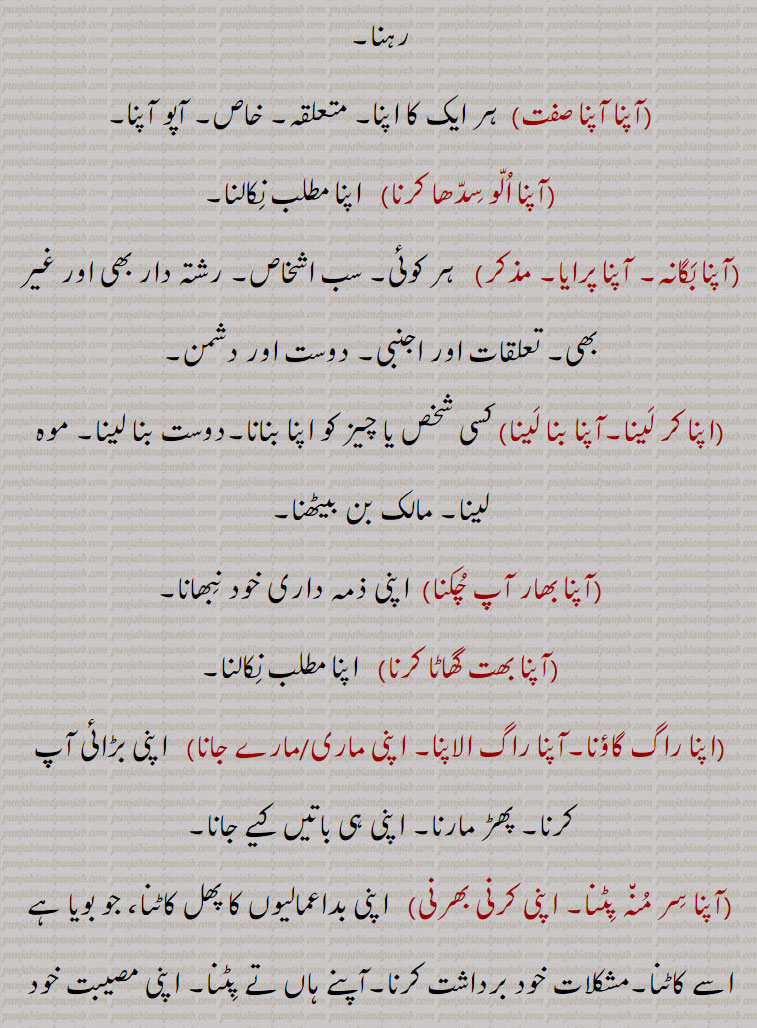 رہنا۔
(آپنا آپنا صفت) ہر ایک کا اپنا۔ متعلقہ۔ خاص۔ آپو آپنا۔
(آپنا اُلّو سِدّھا کرنا) اپنا مطلب نِکالنا۔
(آپنا بَگانہ۔ آپنا پرایا۔ مذکر) ہر کوئی۔ سب اشخاص۔ رشتہ دار بھی اور غیر
بھی۔ تعلقات اور اجنبی۔ دوست اور دشمن۔
(اپنا کر لَینا۔آپنا بنا لَینا) کسی شخص یا چیز کو اپنا بنانا۔دوست بنا لینا۔ موہ
لینا۔ مالک بن بیٹھنا۔
(آپنا بھار آپ چُکنا) اپنی ذمہ داری خود نِبھانا۔
(آپنا بھت گھاٹا کرنا) اپنا مطلب نِکالنا۔
(اپنا راگ گاؤنا۔آپنا راگ الاپنا۔ اپنی ماری/مارے جانا) اپنی بڑائی آپ
کرنا۔ پھڑ مارنا۔ اپنی ہی باتیں کیے جانا۔
(آپنا سِر مُنّہ پِٹنا۔ اپنی کرنی بھرنی) اپنی بداعمالیوں کا پھل کاٹنا، جو بویا ہے
اسے کاٹنا۔مشکلات خود برداشت کرنا۔آپنے ہاں تے پِٹنا۔ اپنی مصیبت خود